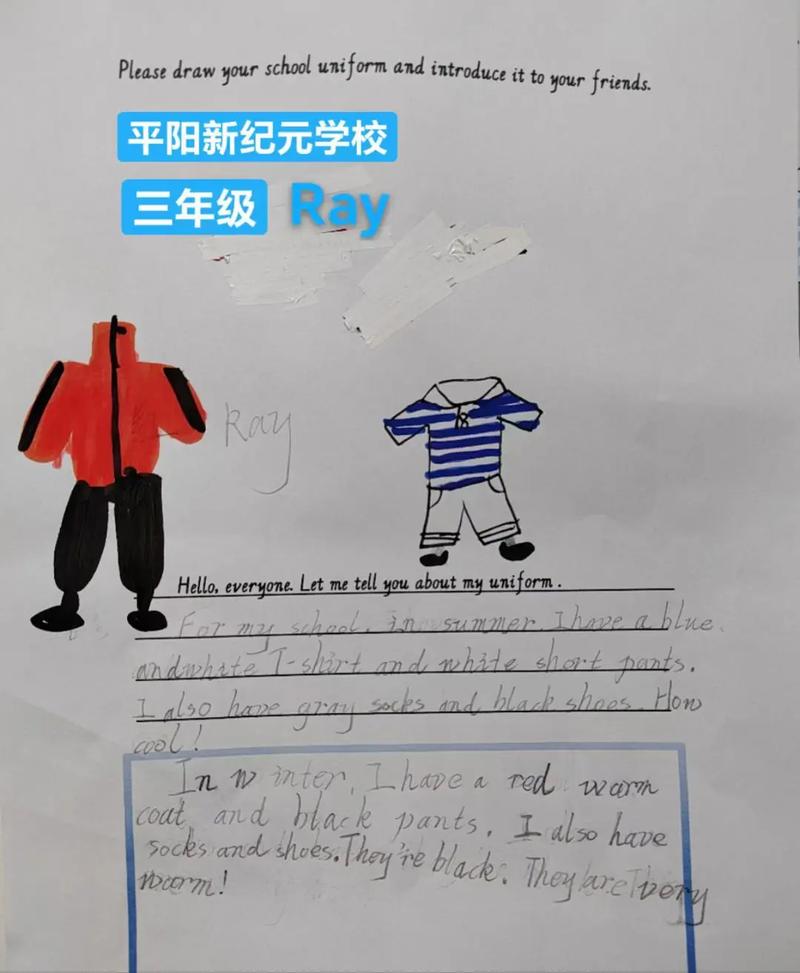 Please draw your school uniform and introduce it to your friends.
平阳新纪元学校
三年级 Ray
Ray
Hello, everyone. Let me tell you about my uniform.
For my school, in summer, I have a blue
and white T-shirt and white short pants.
I also have gray socks and black shoes. How
cool!
In winter, I have a red warm
coat and black pants. I also have
socks and shoes. They're black. They are very
warm!